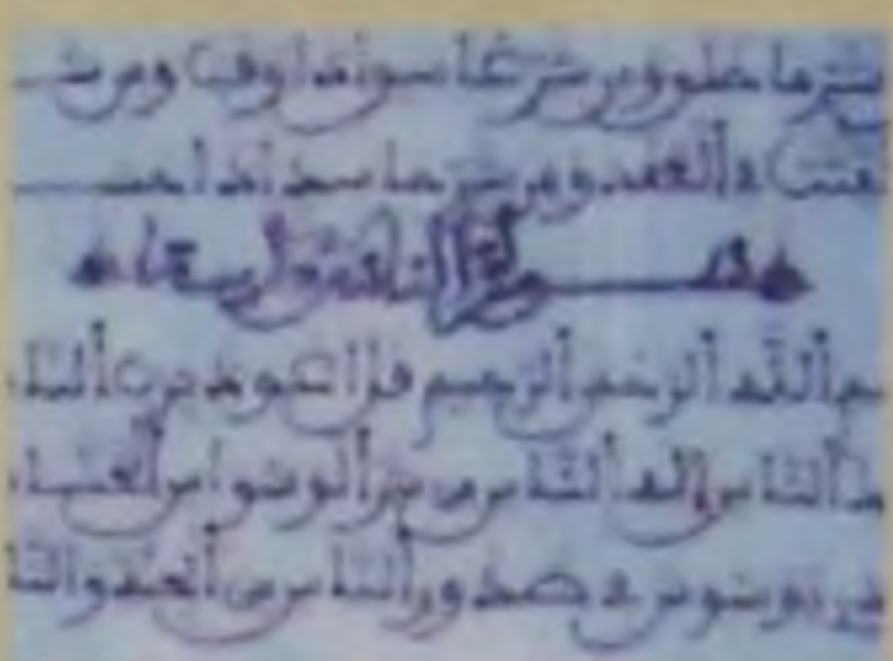 شر ما خلق ومن شر غاسق اذا وقب ومن شر
في العقد ومن شر حاسد اذا حسد
سورة الناس
الله الرحمن الرحيم قل اعوذ برب النا
الناس اله الناس من شر الوسواس الخنا
يوسوس في صدور الناس من الجنة والنا